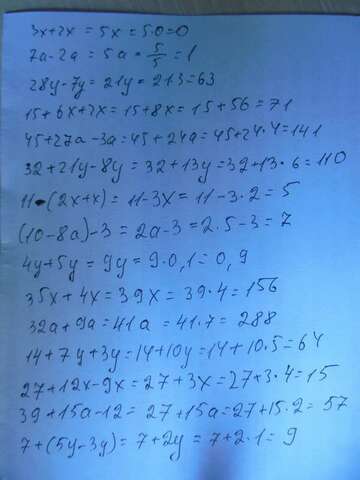 3x+2x = 5x = 5·0=0
7a-2a = 5a = 5/5 = 1
28y-7y= 21y = 21·3=63
15+6x+2x= 15+8x= 15+56=71
45+27a-3a=45+24a=45+24·4=141
32+21y-8y = 32+13y=32+13·6=110
11-(2x+x)= 11-3x= 11-3·2=5
(10-8a)-3=2a-3=2·5-3=7
4y+5y = 9y= 9·0,1=0,9
35x+4x = 39x = 39·4=156
32a+9a=41a = 41·7= 288
14+7y+3y=14+10y=14+10·5=64
27+12x-9x= 27+3x=27+3·4=15
39+15a-12= 27+15a=27+15·2= 57
7+(5y-3y)= 7+2y= 7+2·1= 9